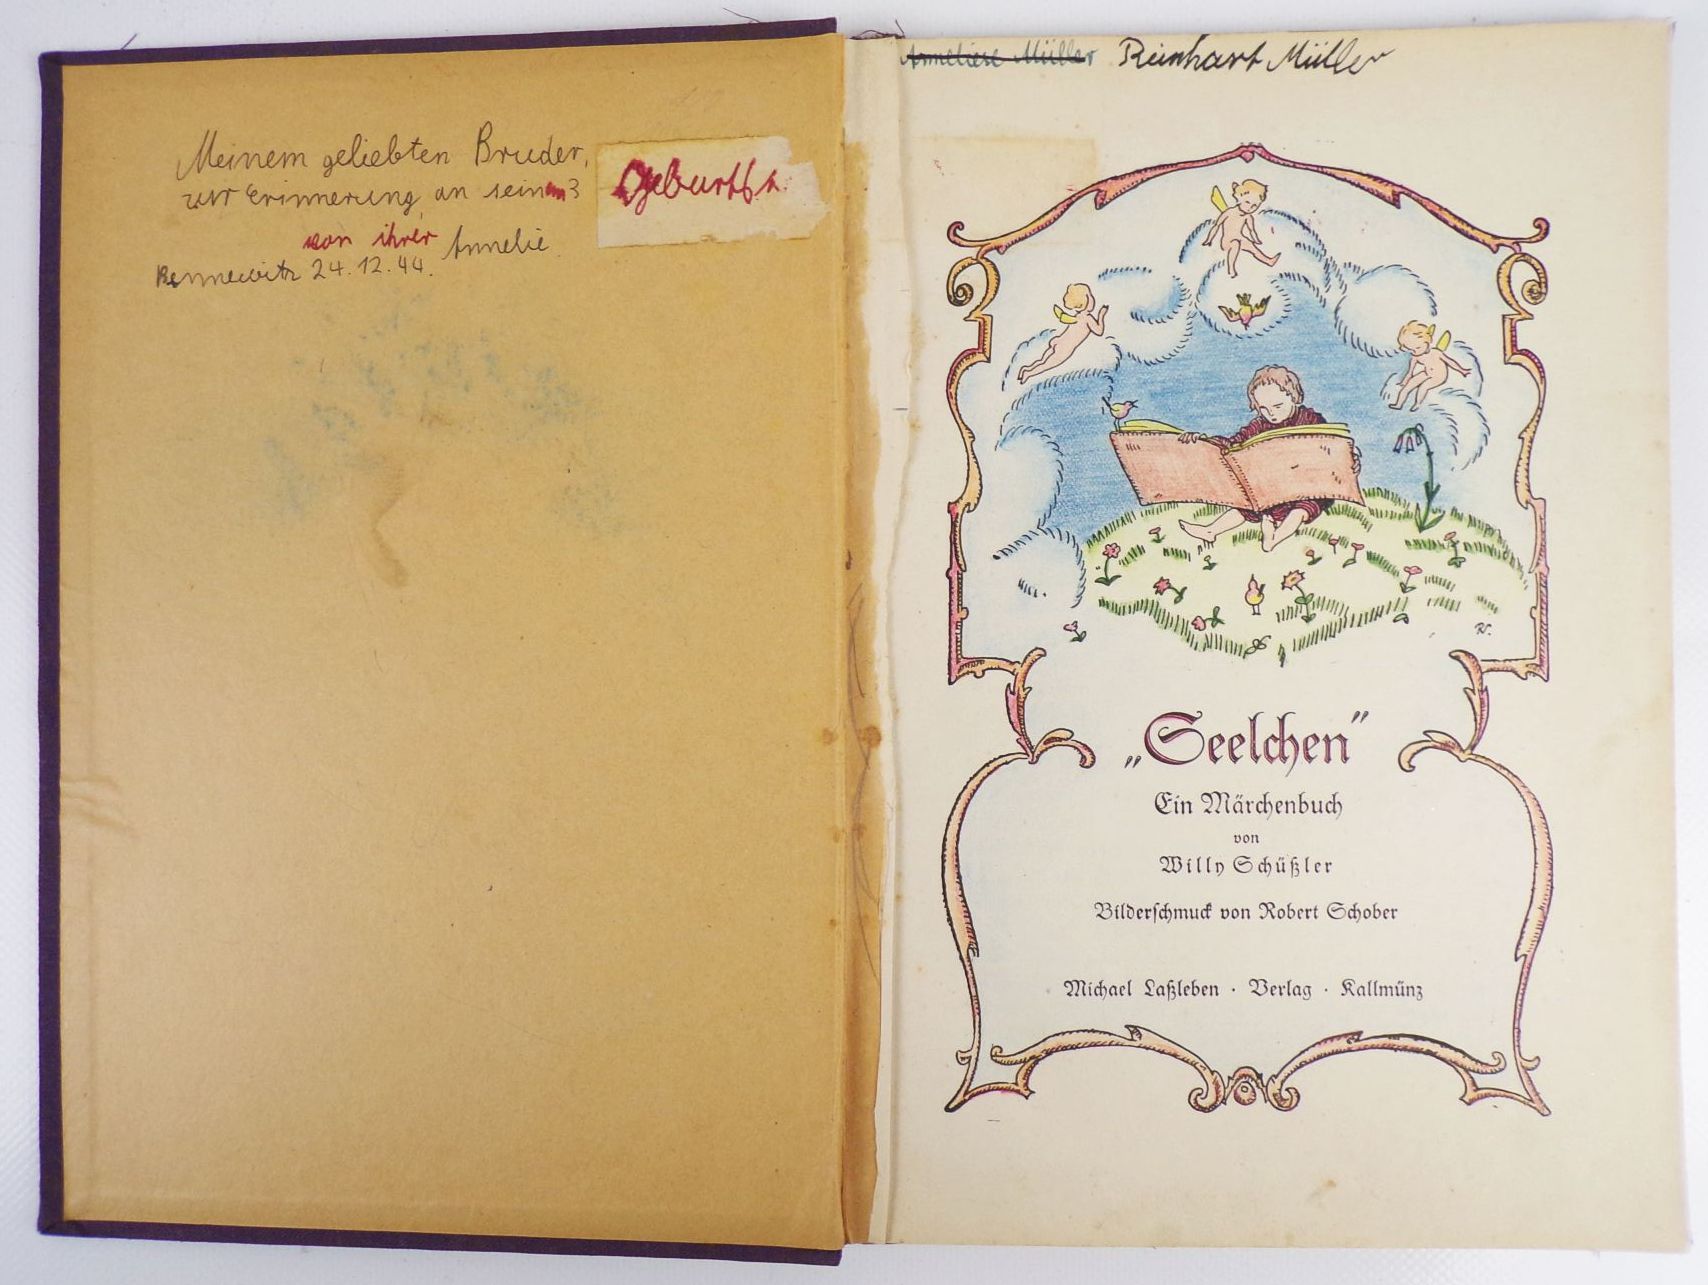 Meinem geliebten Bruder,
zur Erinnerung an seinem 3
Geburtst.
von ihrer Annelie.
Bennewitz 24.12.44.
Anneliese Müller Reinhart Müller
RS.
„Seelchen“
Ein Märchenbuch
von
Willy Schüßler
Bilderschmuck von Robert Schober
Michael Laßleben · Verlag · Kallmünz